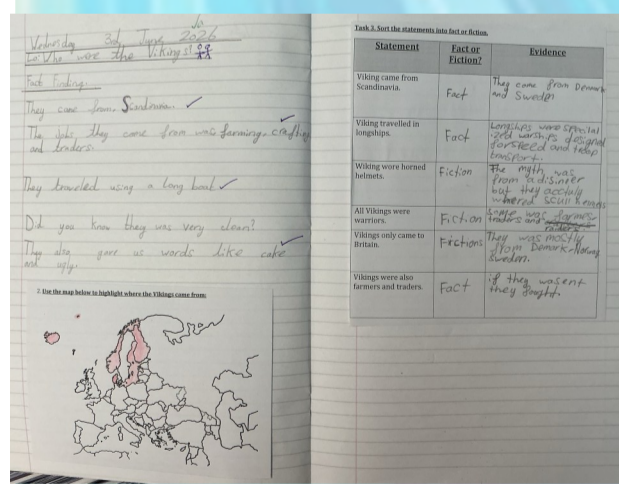 Jo
Wednesday 3rd June 2026
Lo: Who were the Vikings?
Fact Finding.
They came from Scandinavia.
The jobs they came from was farming, crafting
and traders.
They traveled using a long boat
Did you know they was very clean?
They also gave us words like cake
and ugly.
2. Use the map below to highlight where the Vikings came from:
Task 3. Sort the statements into fact or fiction.
Statement
Fact or
Fiction?
Evidence
Viking came from
Scandinavia.
Fact
They came from Denmark
and Sweden
Viking travelled in
longships.
Fact
Longships were special
ized warships designed
for speed and troop
transport.
Viking wore horned
helmets.
Fiction
The myth was
from a disinter
but they acctaly
whered scull helmets
All Vikings were
warriors.
Fiction
Some was farmer
traders and
raiders
Vikings only came to
Britain.
Fictions
They was mostly
from Demark-Norway
Swedm.
Vikings were also
farmers and traders.
Fact
if they wasent
they fought.